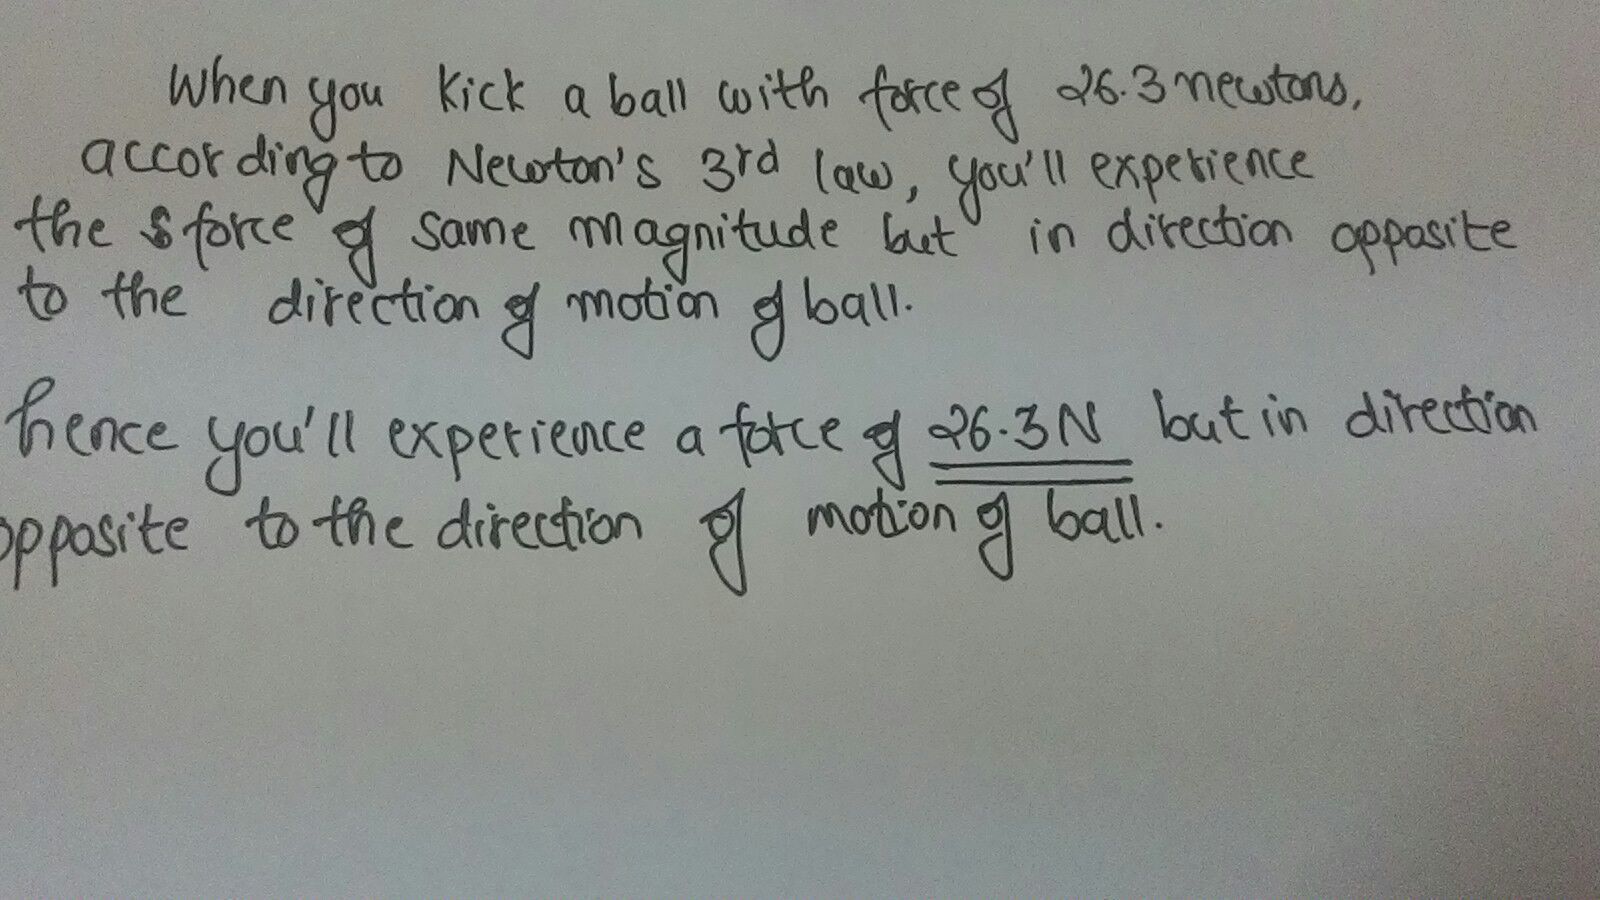 When you kick a ball with force of 26.3 newtons,
according to Newton's 3rd law, you'll experience
the force of same magnitude but in direction opposite
to the direction of motion of ball.
hence you'll experience a force of 26.3N but in direction
opposite to the direction of motion of ball.